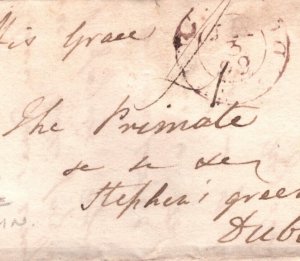 His Grace
The Primate
&c &c &c
Stephen's green
Dub